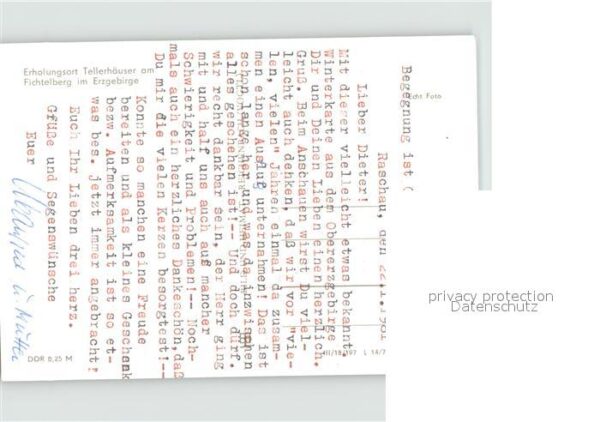 Erholungsort Tellerhäuser am
Fichtelberg im Erzgebirge
Echt Foto
Begegnung ist
Raschau, den
Lieber Dieter!
Mit dieser vielleicht etwas bekannten
Winterkarte aus dem Obererzgebirge
Dir und Deinen Lieben einen herzlich.
Gruß. Beim Anschauen wirst Du viel-
leicht auch denken, daß wir vor "vie-
len, vielen" Jahren einmal da zusam-
men einen Ausflug unternahmen! Das ist
schon lange her und was da inzwischen
alles geschehen ist!-- Und doch dürf.
wir recht dankbar sein, der Herr ging
mit und half uns auch aus mancher
Schwierigkeit und Problemen!-- Noch-
mals auch ein herzliches Dankeschön, daß
Du mir die vielen Kerzen besorgtest!--
Konnte so manchen eine Freude
bereiten und als kleines Geschenk
bezw. Aufmerksamkeit ist so et-
was bes. jetzt immer angebracht!
Euch Ihr Lieben drei herz.
Grüße und Segenswünsche
Euer
u. Mutter
DDR 0,25 M
privacy protection
Datenschutz